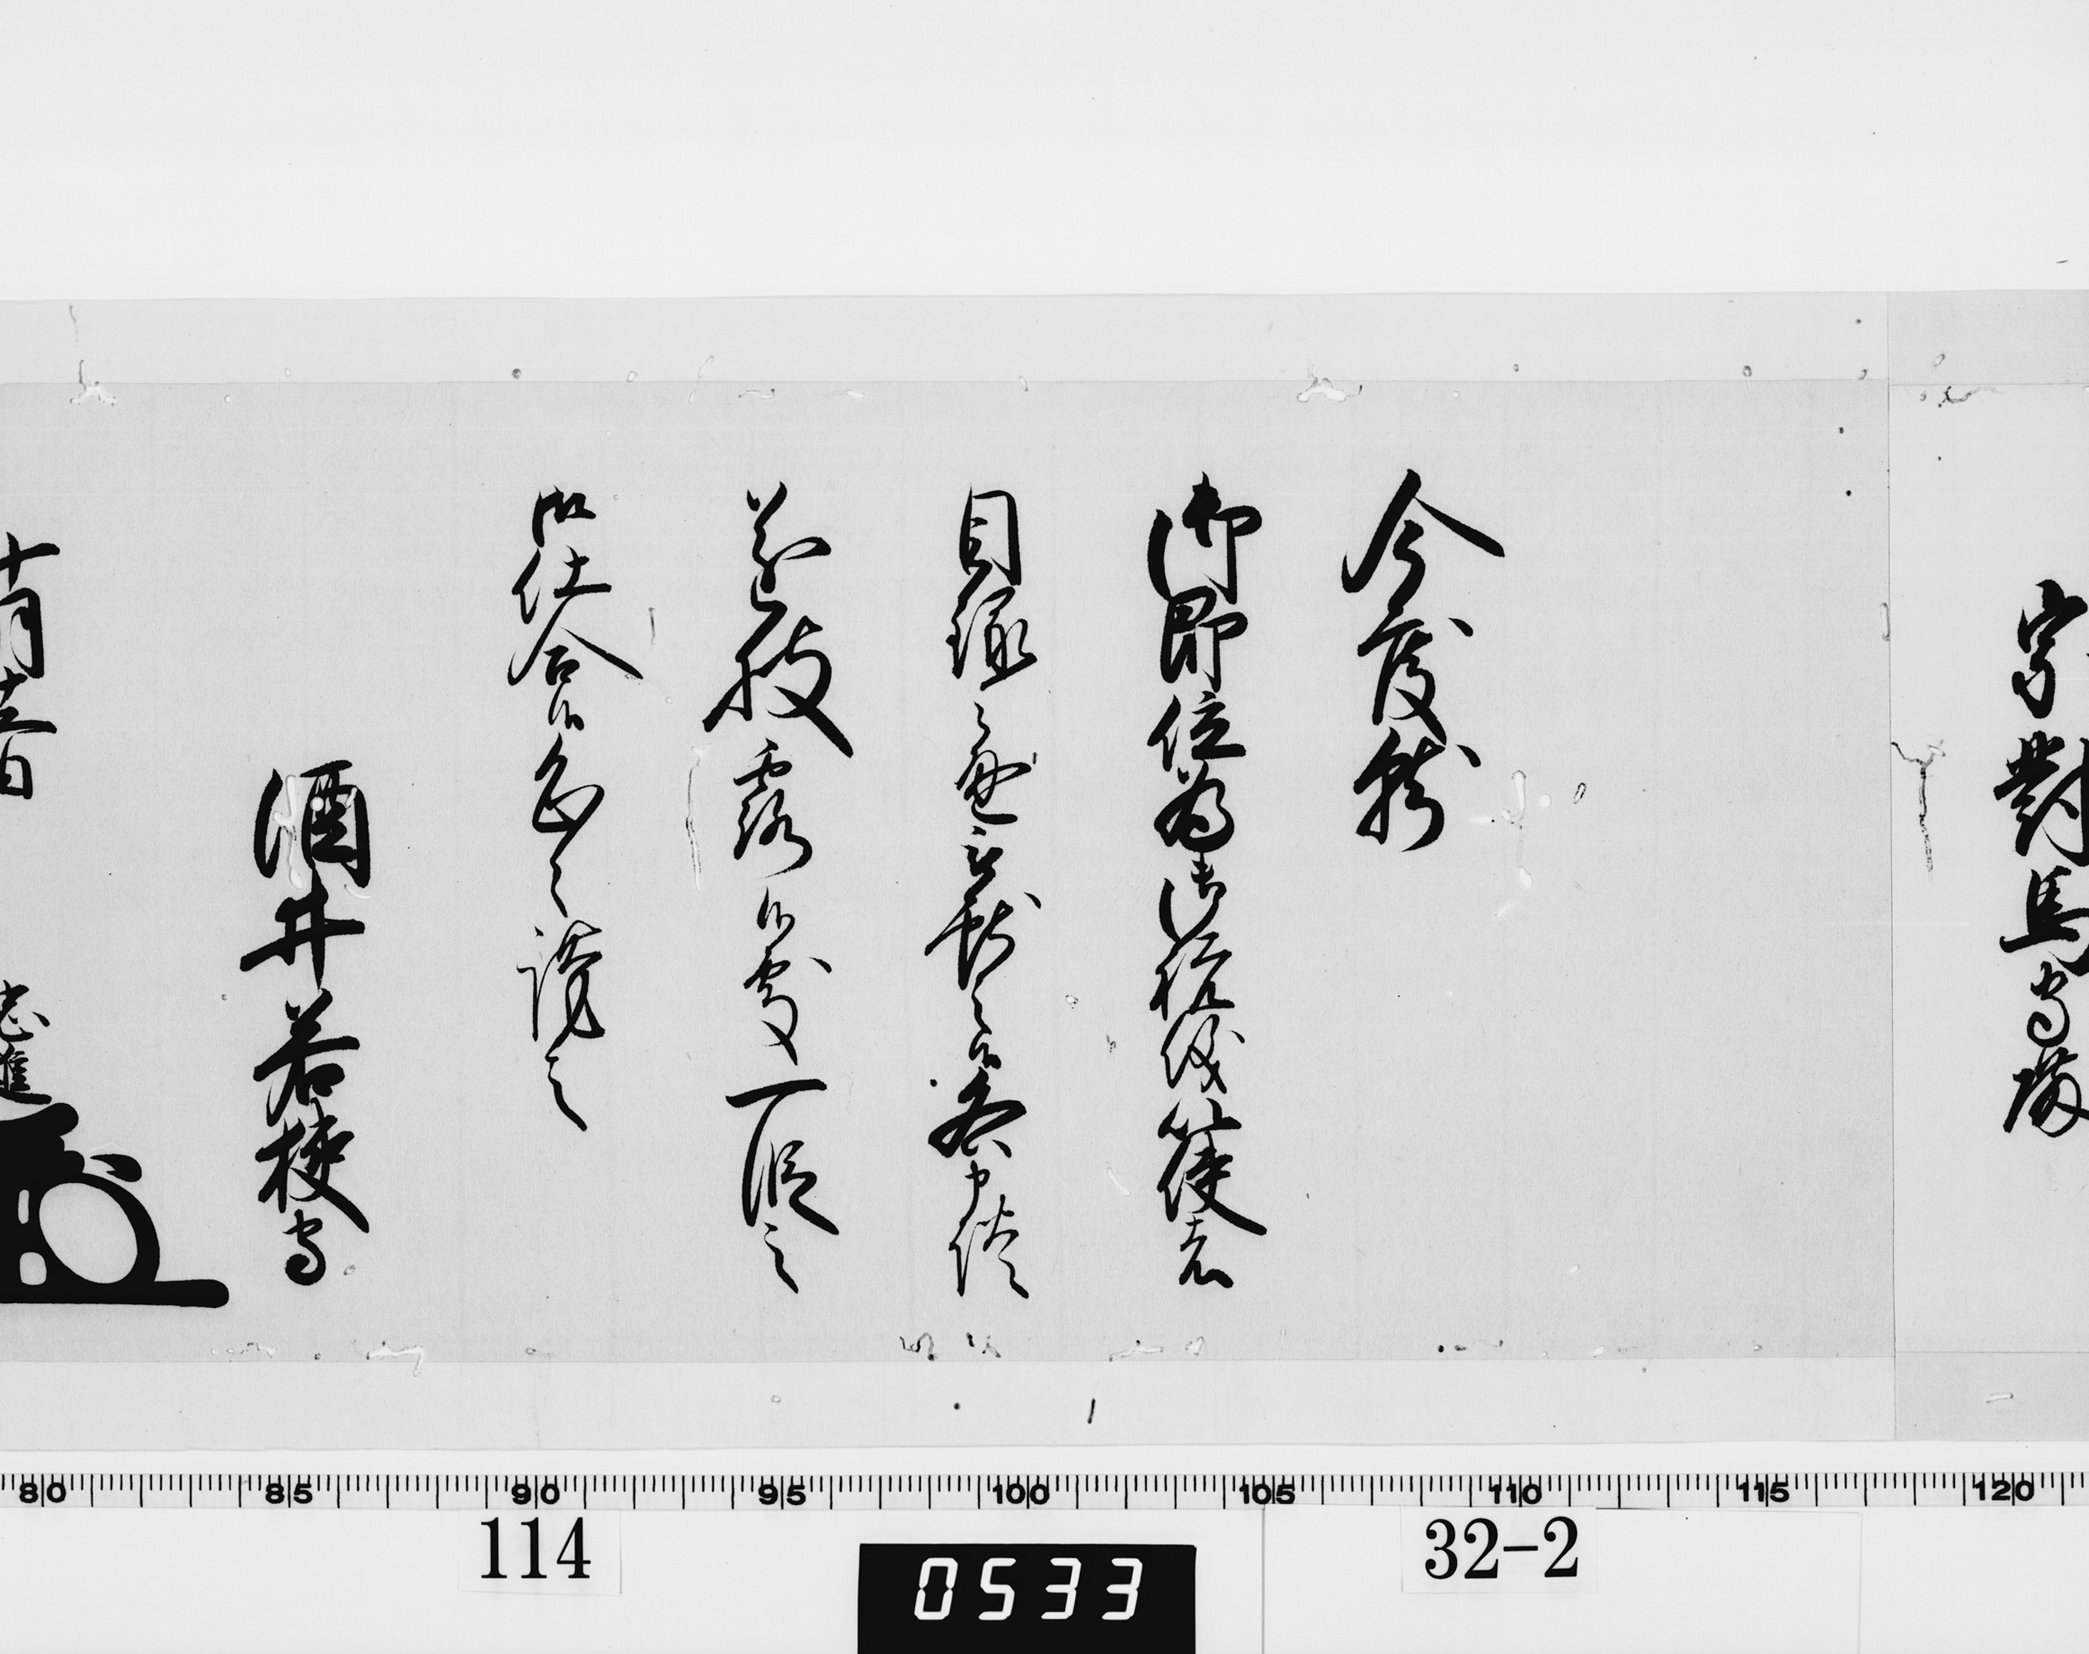 宗對馬守殿
今度就
御即位為御祝儀以使者
目録之通被獻之候各申談
遂披露候處一段之
御仕合候恐々謹言
酒井若狭守
十月日
忠進
80 85 90 95 100 105 110 115 120
114
0533
32-2